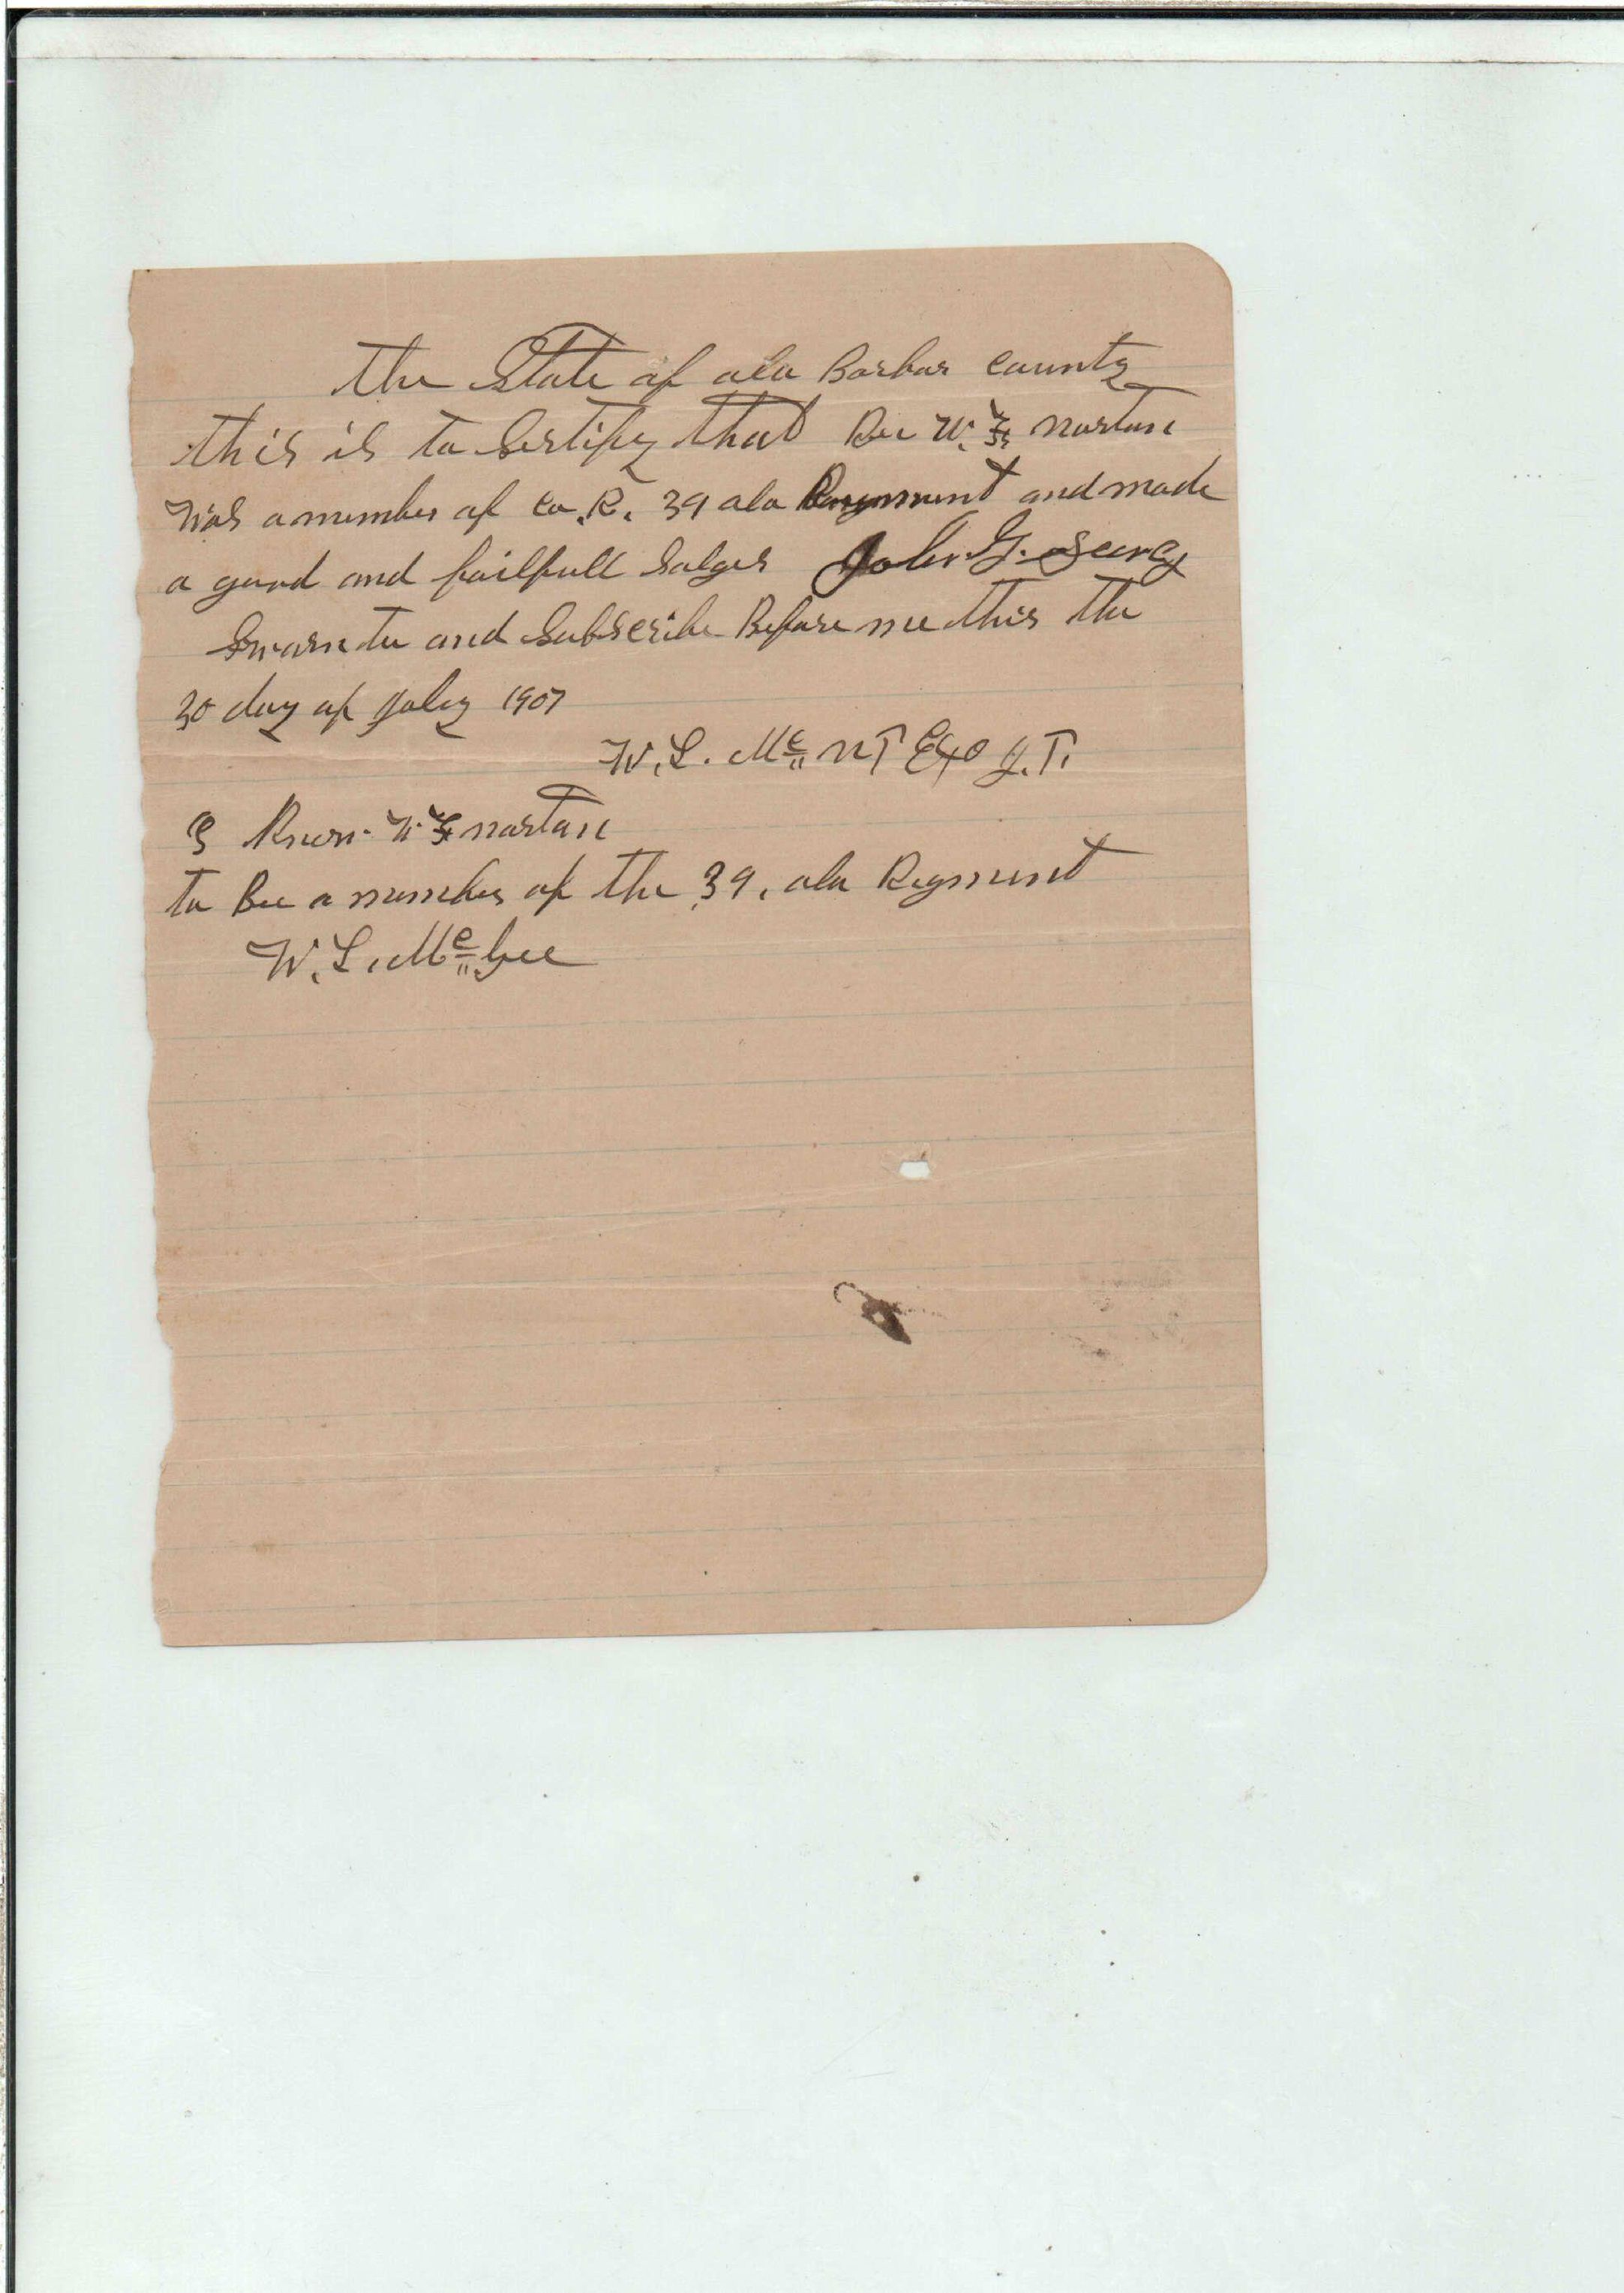 The State of ala Barbar County
this is to Sertify that Rev W. F. Norton
Was a member of Co. K. 39 ala Regment and made
a good and failfull Solger John. G.
Sworn to and Subscribe Before me this the
30 day of July 1907
W. L. Mc N P Exo J. P.
I Know W F Norton
to Bee a member of the 39. ala Regment
W. L. McGee